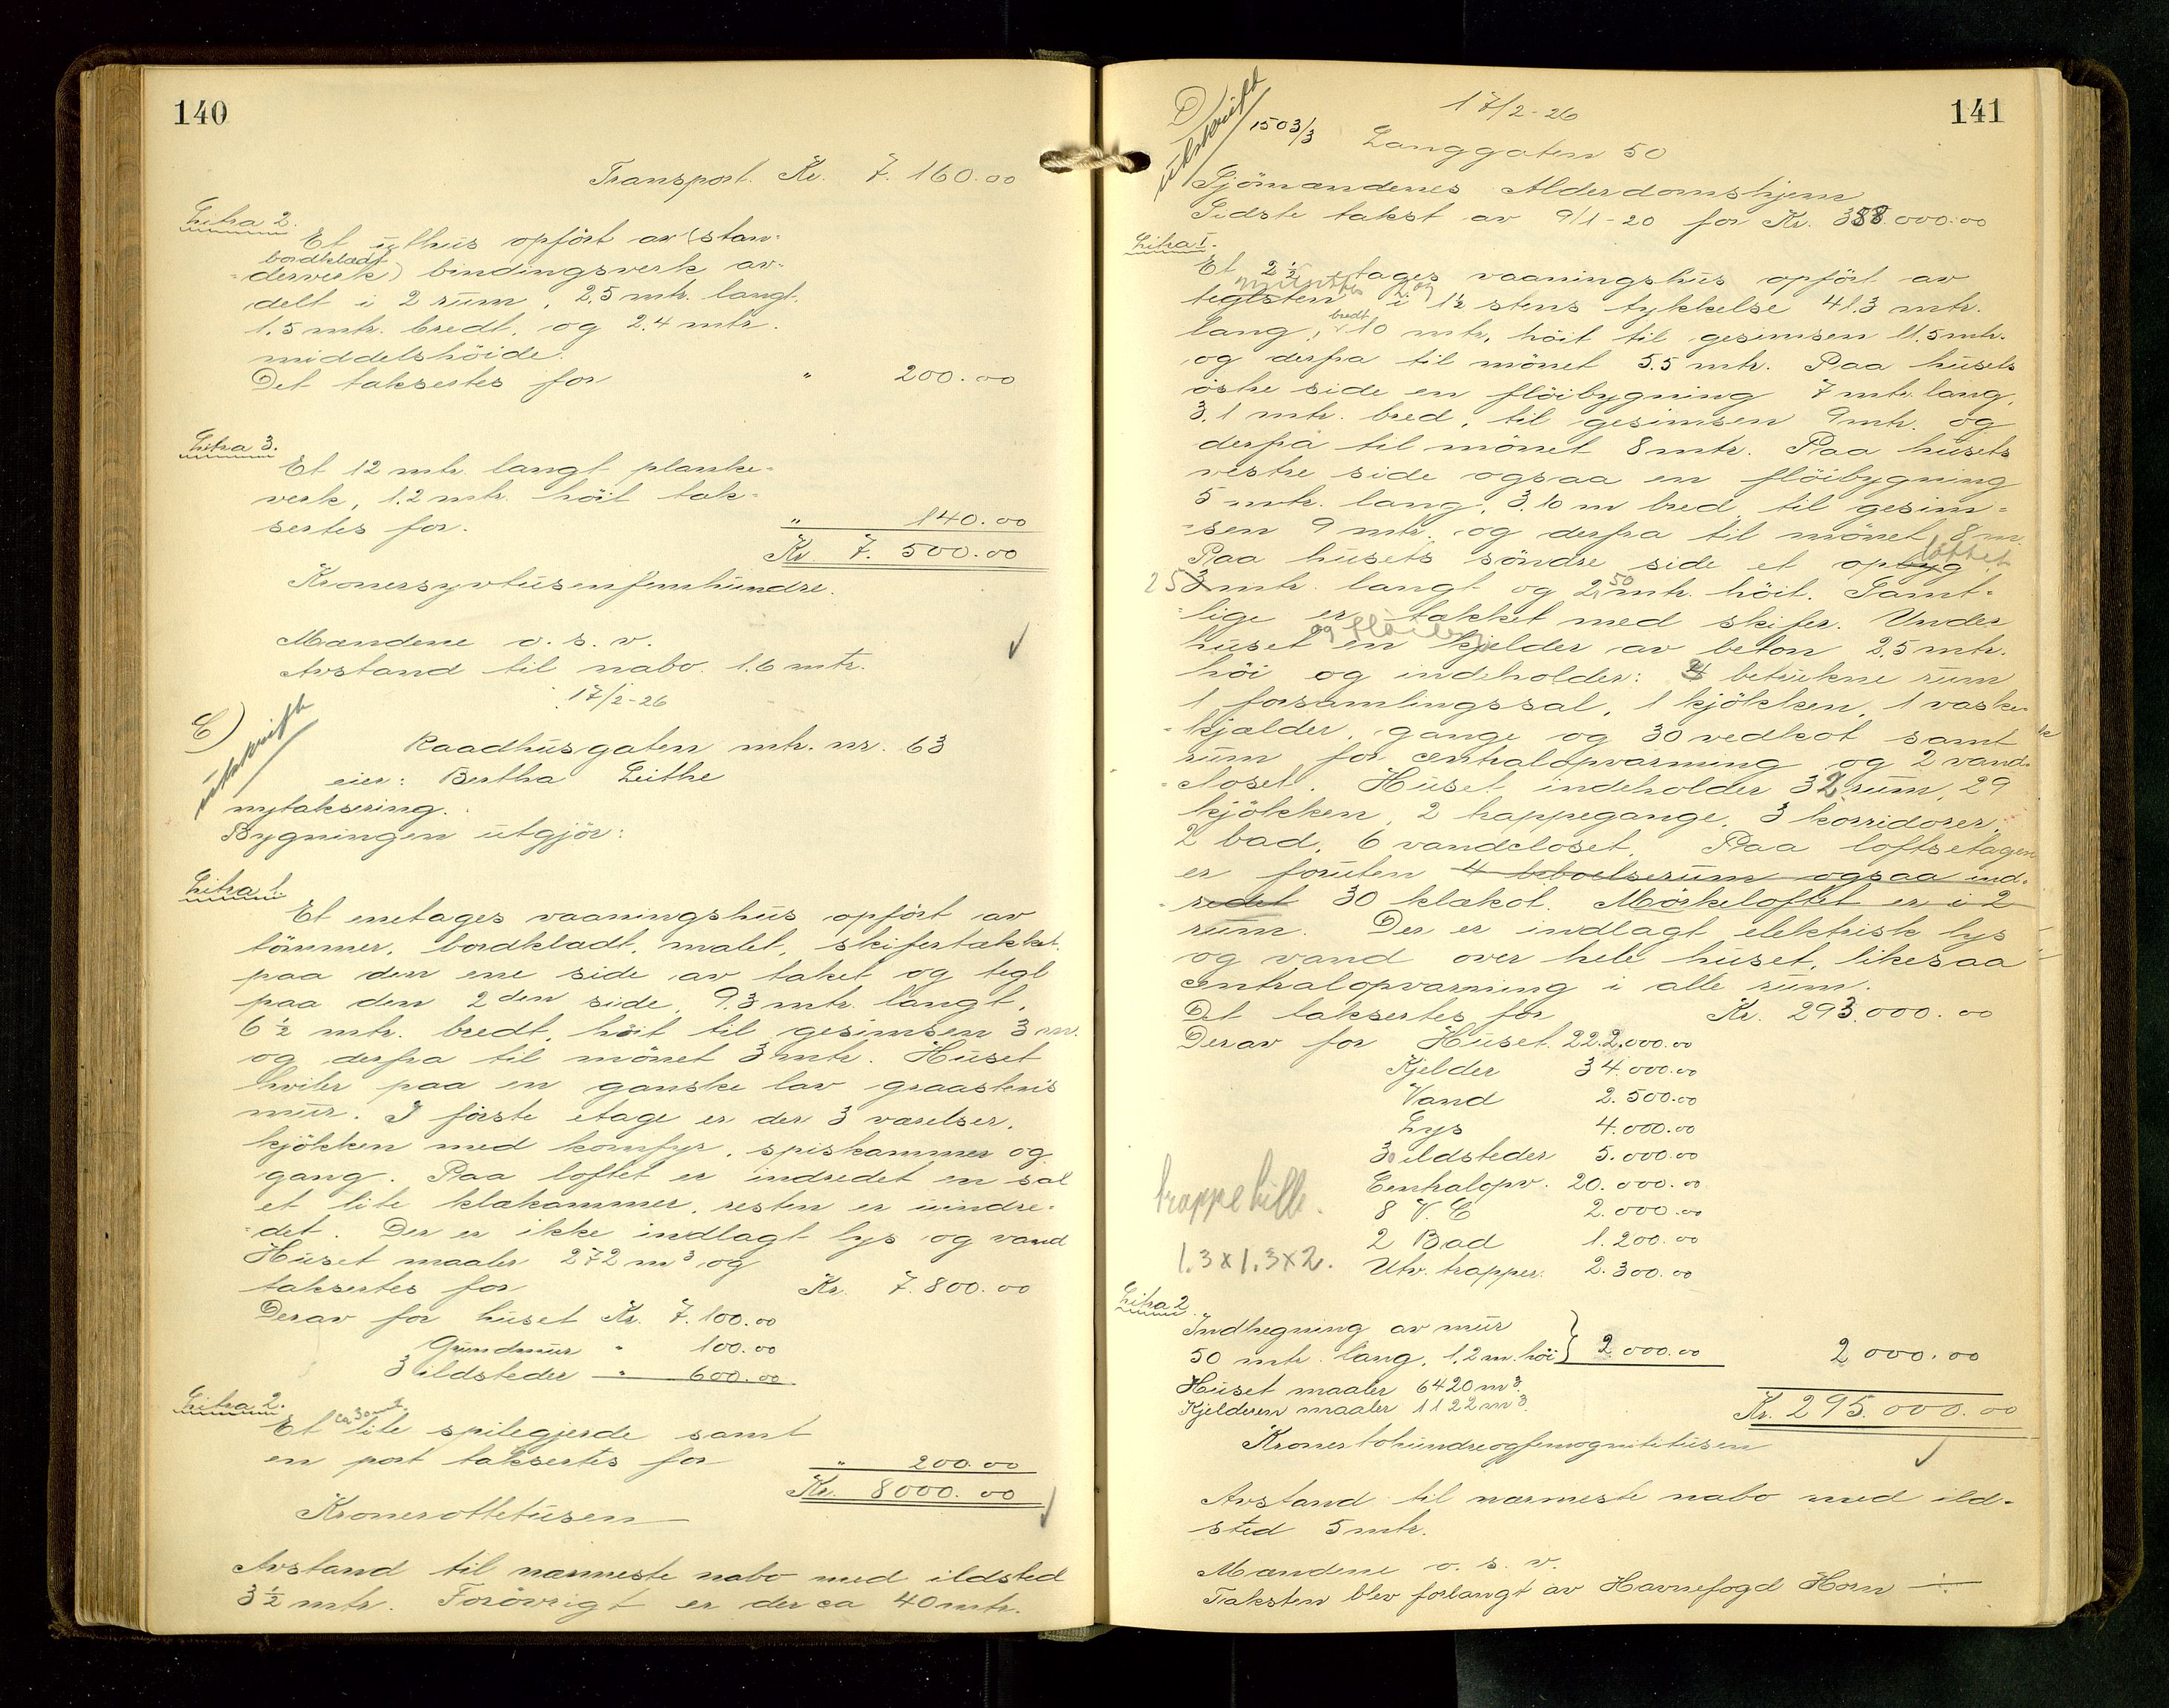 140
Transport. Kr. 7.160.00
Litra 2.
Et uthus opfört av (stan-
bordklædt
derverk) bindingsverk av-
delt i 2 rum, 2,5 mtr. langt.
1.5 mtr. bredt, og 2.4 mtr.
middelshöide.
Det taksertes for " 200.00
Litra 3.
Et 12 mtr. langt planke-
verk, 1.2 mtr. höit tak-
sertes for. " 140.00
Kr 7.500.00
Kronersyvtusenfemhundre.
Mændene o. s. v.
Avstand til nabo 1.6 mtr.
17/2-26
C)
utskrift
Raadhusgaten mtr. nr. 63
eier: Bertha Leithe
nytaksering.
Bygningen utgjör:
Litra 1.
Et enetages vaaningshus opfört av
tömmer, bordklædt, malet, skifertækket
paa den ene side av taket og tegl
paa den 2den side, 9.3 mtr. langt,
6½ mtr. bredt, höit til gesimsen 3 m.
og derfra til mönet 3 mtr. Huset
hviler paa en ganske lav graastens
mur. I förste etage er der 3 værelser,
kjökken med komfyr, spiskammer og
gang. Paa loftet er indredet en sal
et lite klækammer, resten er uindre-
det. Der er ikke indlagt lys og vand
Huset maaler 272 m³ og
taksertes for Kr. 7.800.00
Derav for huset Kr. 7.100.00
Grundmur " 100.00
3 ildsteder " 600.00
Litra 2.
ca 30 mt.
Et lite spilegjerde samt
en port taksertes for " 200.00
Kr. 8000.00
Kronerottetusen
Avstand til nærmeste nabo med ildsted
3½ mtr. Forövrigt er der ca 40 mtr.
141
D)
utskrift
17/2-26
1503/3 Langgaten 50
Sjömændenes Alderdomshjem
Sidste takst av 9/1-20 for Kr. 388.000.00
Litra 1.
Et 2½ etages vaaningshus opfört av
teglsten i 1½ stens tykkelse 41.3 mtr.
bredt
lang, 10 mtr, höit til gesimsen 11.5 mtr.
og derfra til mönet 5.5 mtr. Paa husets
östre side en flöibygning 7 mtr. lang,
3,1 mtr. bred, til gesimsen 9 mtr. og
derfra til mönet 8 mtr. Paa husets
vestre side ogsaa en flöibygning
5 mtr. lang, 3,10 m bred, til gesim-
sen 9 mtr. og derfra til mönet 8 m.
löftet
Paa husets söndre side et opbyg
25 3 mtr. langt og 2,50 mtr. höit. Samt-
lige er tækket med skifer. Under
og flöiene
huset en kjelder av beton 2,5 mtr.
höi og indeholder: betrukne rum
1 forsamlingssal, 1 kjökken, 1 vaske-
kjælder, gange og 30 vedkot samt
rum for centralopvarmning og 2 vand-
closet. Huset indeholder 32 rum, 29
kjökken, 2 trappegange, 3 korridorer,
2 bad, 6 vandcloset. Paa loftsetagen
er foruten 4 beboelserum ogsaa ind-
redet 30 klækot. Mörkeloftet er i 2
rum. Der er indlagt elektrisk lys
og vand over hele huset, likesaa
centralopvarmning i alle rum.
Det taksertes for Kr. 293.000.00
Derav for Huset 222.000.00
Kjelder 34.000.00
Vand 2.500.00
Lys 4.000.00
30 ildsteder 5.000.00
Centralopv. 20.000.00
8 V. C 2.000.00
2 Bad 1.200.00
Utv. trapper. 2.300.00
trappehille.
1.3 x 1.3 x 2.
Litra 2
Indhegning av mur
50 mtr. lang, 1,2 m. höi } 2000.00 2000.00
Huset maaler 6420 m³.
Kjelderen maaler 1122 m³.
Kr. 295.000.00
Kronertohundreogfemognittitusen
Avstand til nærmeste nabo med ild-
sted 5 mtr.
Mændene o. s. v.
Taksten blev forlangt av Havnefogd Horn